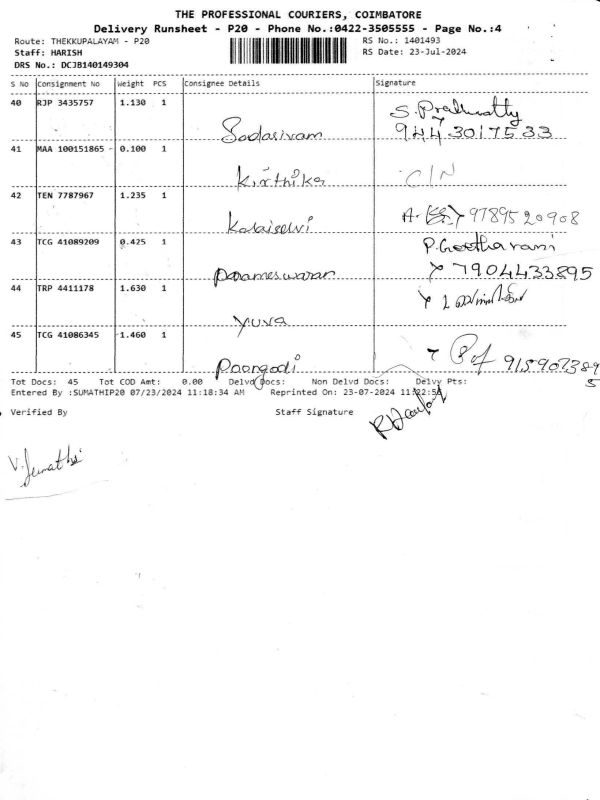 THE PROFESSIONAL COURIERS, COIMBATORE
Delivery Runsheet - P20 - Phone No.:0422-3505555 - Page No.:4
Route: THEKKUPALAYAM - P20 RS No.: 1401493
Staff: HARISH RS Date: 23-Jul-2024
DRS No.: DCJB140149304
S No Consignment No Weight PCS Consignee Details Signature
40 RJP 3435757 1.130 1
Sadasivam 9443017533
41 MAA 100151865 0.100 1
Kirthika
42 TEN 7787967 1.235 1
Kalaiselvi 9789520908
43 TCG 41089209 0.425 1 P. Geetharani
Parameswaran 7904433895
44 TRP 4411178 1.630 1
Yuva
45 TCG 41086345 1.460 1
Poongodi 9159073895
Tot Docs: 45 Tot COD Amt: 0.00 Delvd Docs: Non Delvd Docs: Delvy Pts:
Entered By :SUMATHIP20 07/23/2024 11:18:34 AM Reprinted On: 23-07-2024
Verified By Staff Signature
V. Sumathi